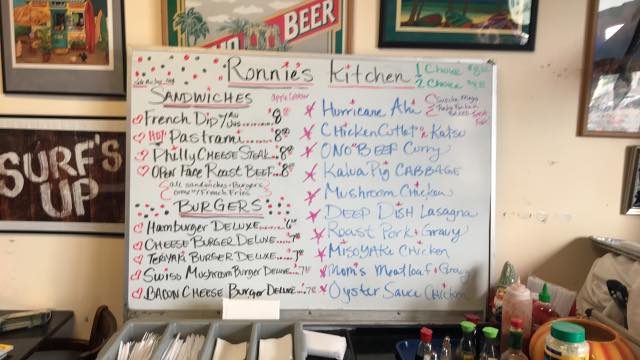 BEER
Ronnie's Kitchen
1 Choice
2 Choice
SANDWICHES
French Dip w/Au Jus
HOT Pastrami
Philly Cheese Steak
Open Face Roast Beef
all sandwiches & Burgers
come w/French Fries
BURGERS
Hamburger Deluxe
Cheese Burger Deluxe
Teriyaki Burger Deluxe
Swiss Mushroom Burger Deluxe
Bacon Cheese Burger Deluxe
Hurricane Ahi
Chicken Cutlet & Katsu
ONO BEEF Curry
Kalua Pig CABBAGE
Mushroom Chicken
DEEP DISH Lasagna
Roast Pork & Gravy
MISOYAKI Chicken
Mom's Meatloaf & Gravy
Oyster Sauce Chicken
SURF'S
UP